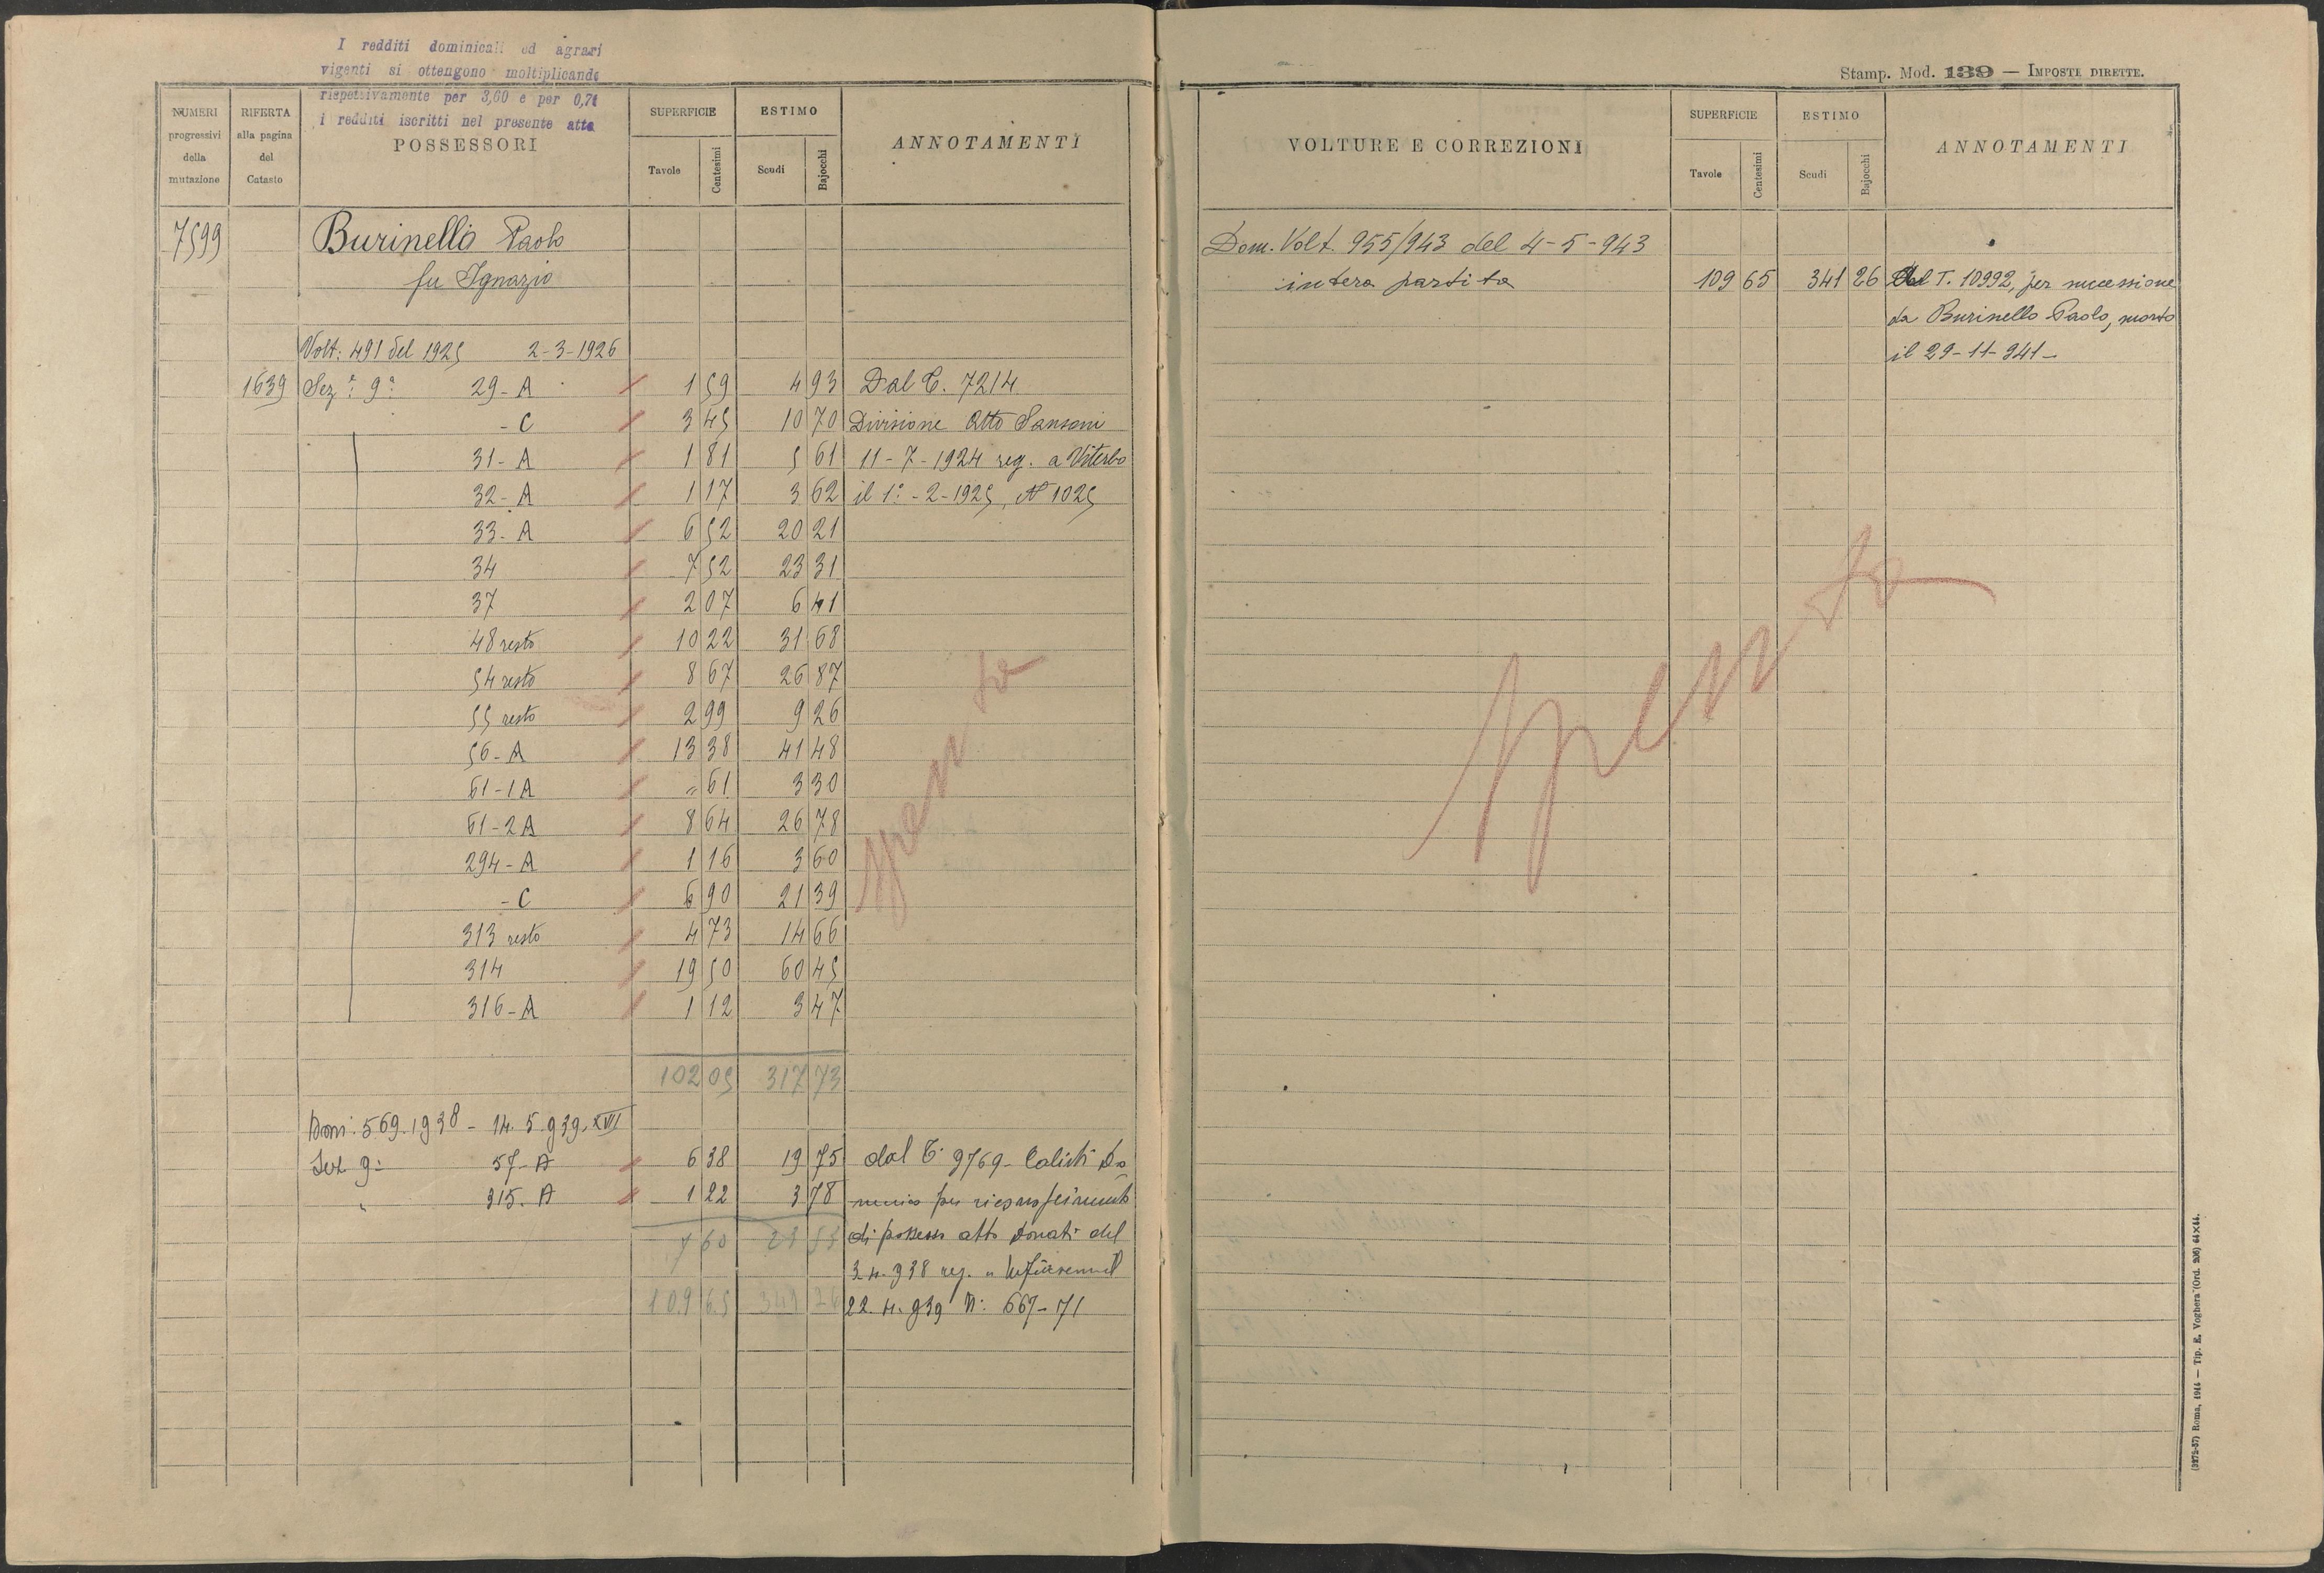 I redditi dominicali ed agrari
vigenti si ottengono moltiplicando
rispettivamente per 3,60 e per 0,71
i redditi iscritti nel presente atto
NUMERI progressivi della mutazione
RIFERTA alla pagina del Catasto
POSSESSORI
SUPERFICIE
Tavole Centesimi
ESTIMO
Scudi Bajocchi
ANNOTAMENTI
7599 Burinello Paolo
fu Ignazio
Volt: 491 del 1925 2-3-1926
1639 Sez: 9a 29-A 1 59 4 93 Dal T. 7214
- C 3 45 10 70 Divisione Atto Sansoni
31-A 1 81 5 61 11-7-1924 reg. a Viterbo
32-A 1 17 3 62 il 1°-2-1925, N 1025
33-A 6 52 20 21
34 7 52 23 31
37 2 07 6 41
48 resto 10 22 31 68
54 resto 8 67 26 87
55 resto 2 99 9 26
56-A 13 38 41 48
61-1A = 61 3 30
61-2A 8 64 26 78
294-A 1 16 3 60
- C 6 90 21 39
313 resto 4 73 14 66
314 19 50 60 45
316-A 1 12 3 47
spento
102 05 317 73
Dom: 569.1938 - 14.5.939.XVII
Sez 9: 57-A 6 38 19 75 dal T. 9769- Calisti Do
" 315.A 1 22 3 78 menico per
7 60 23 53 di possesso atto Donati del
3.4.938 reg. a
109 65 341 26 22.4.939 N: 667-71
Stamp. Mod. 139 — IMPOSTE DIRETTE.
VOLTURE E CORREZIONI
SUPERFICIE
Tavole Centesimi
ESTIMO
Scudi Bajocchi
ANNOTAMENTI
Dom. Volt. 955/943 del 4-5-943
intera partita 109 65 341 26 al T. 10992, per successione
da Burinello Paolo, morto
il 29-11-941-
spento
(3272-57) Roma, 1914 — Tip. E. Voghera (Ord. 206) 64×44.